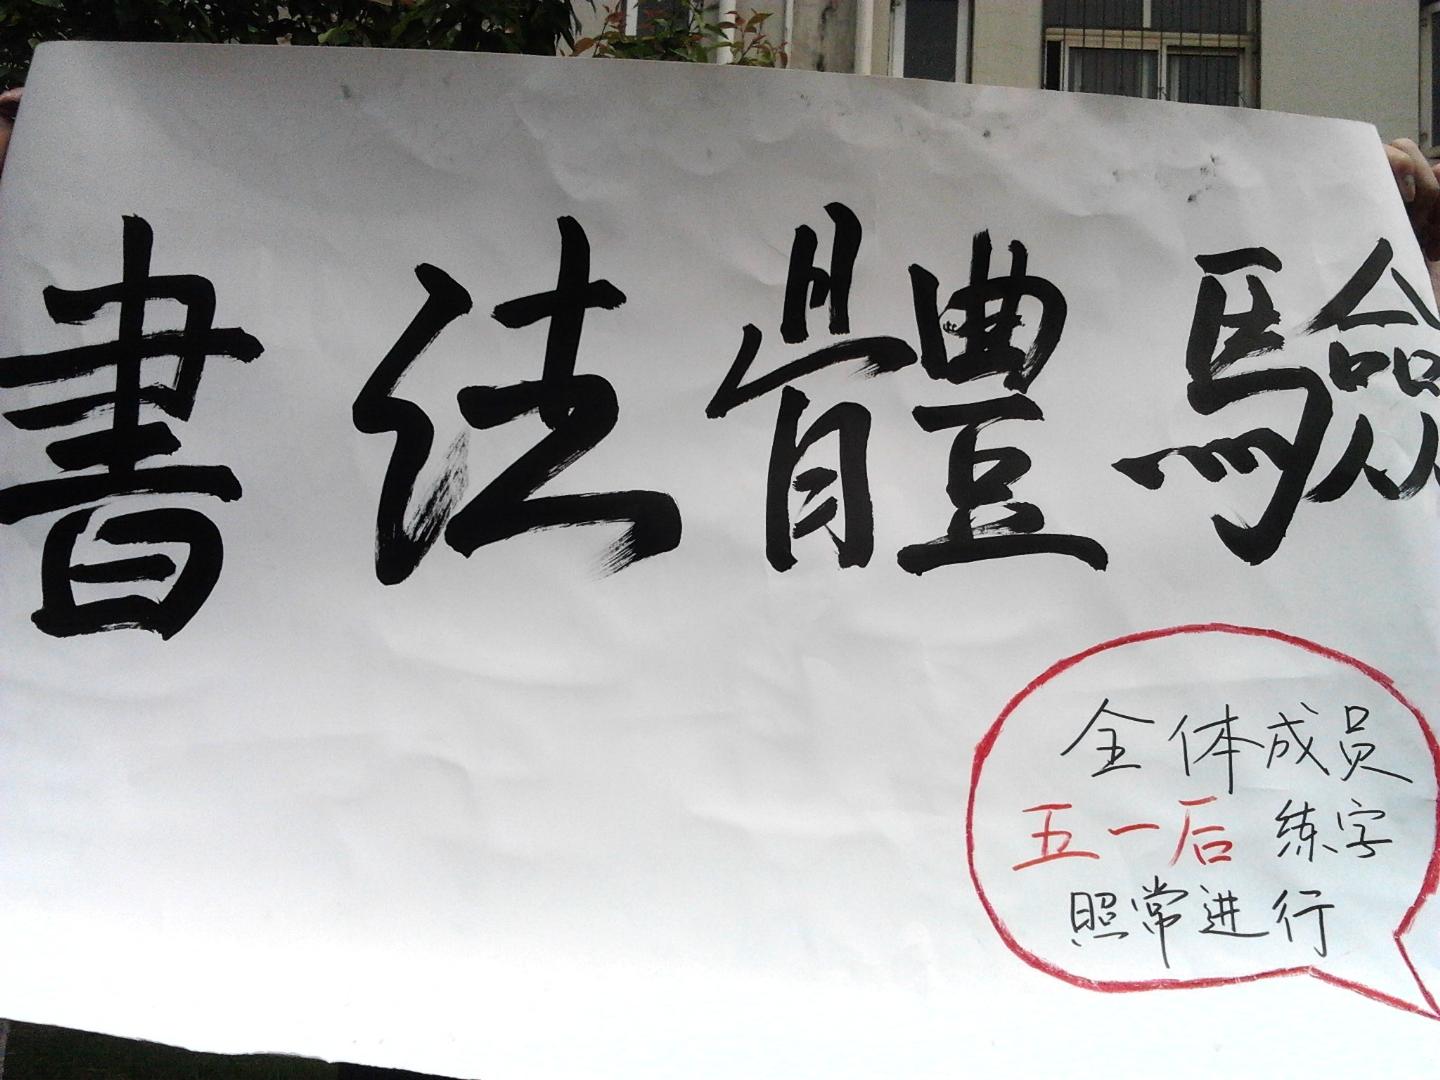 書法體驗
全体成员
五一后练字
照常进行